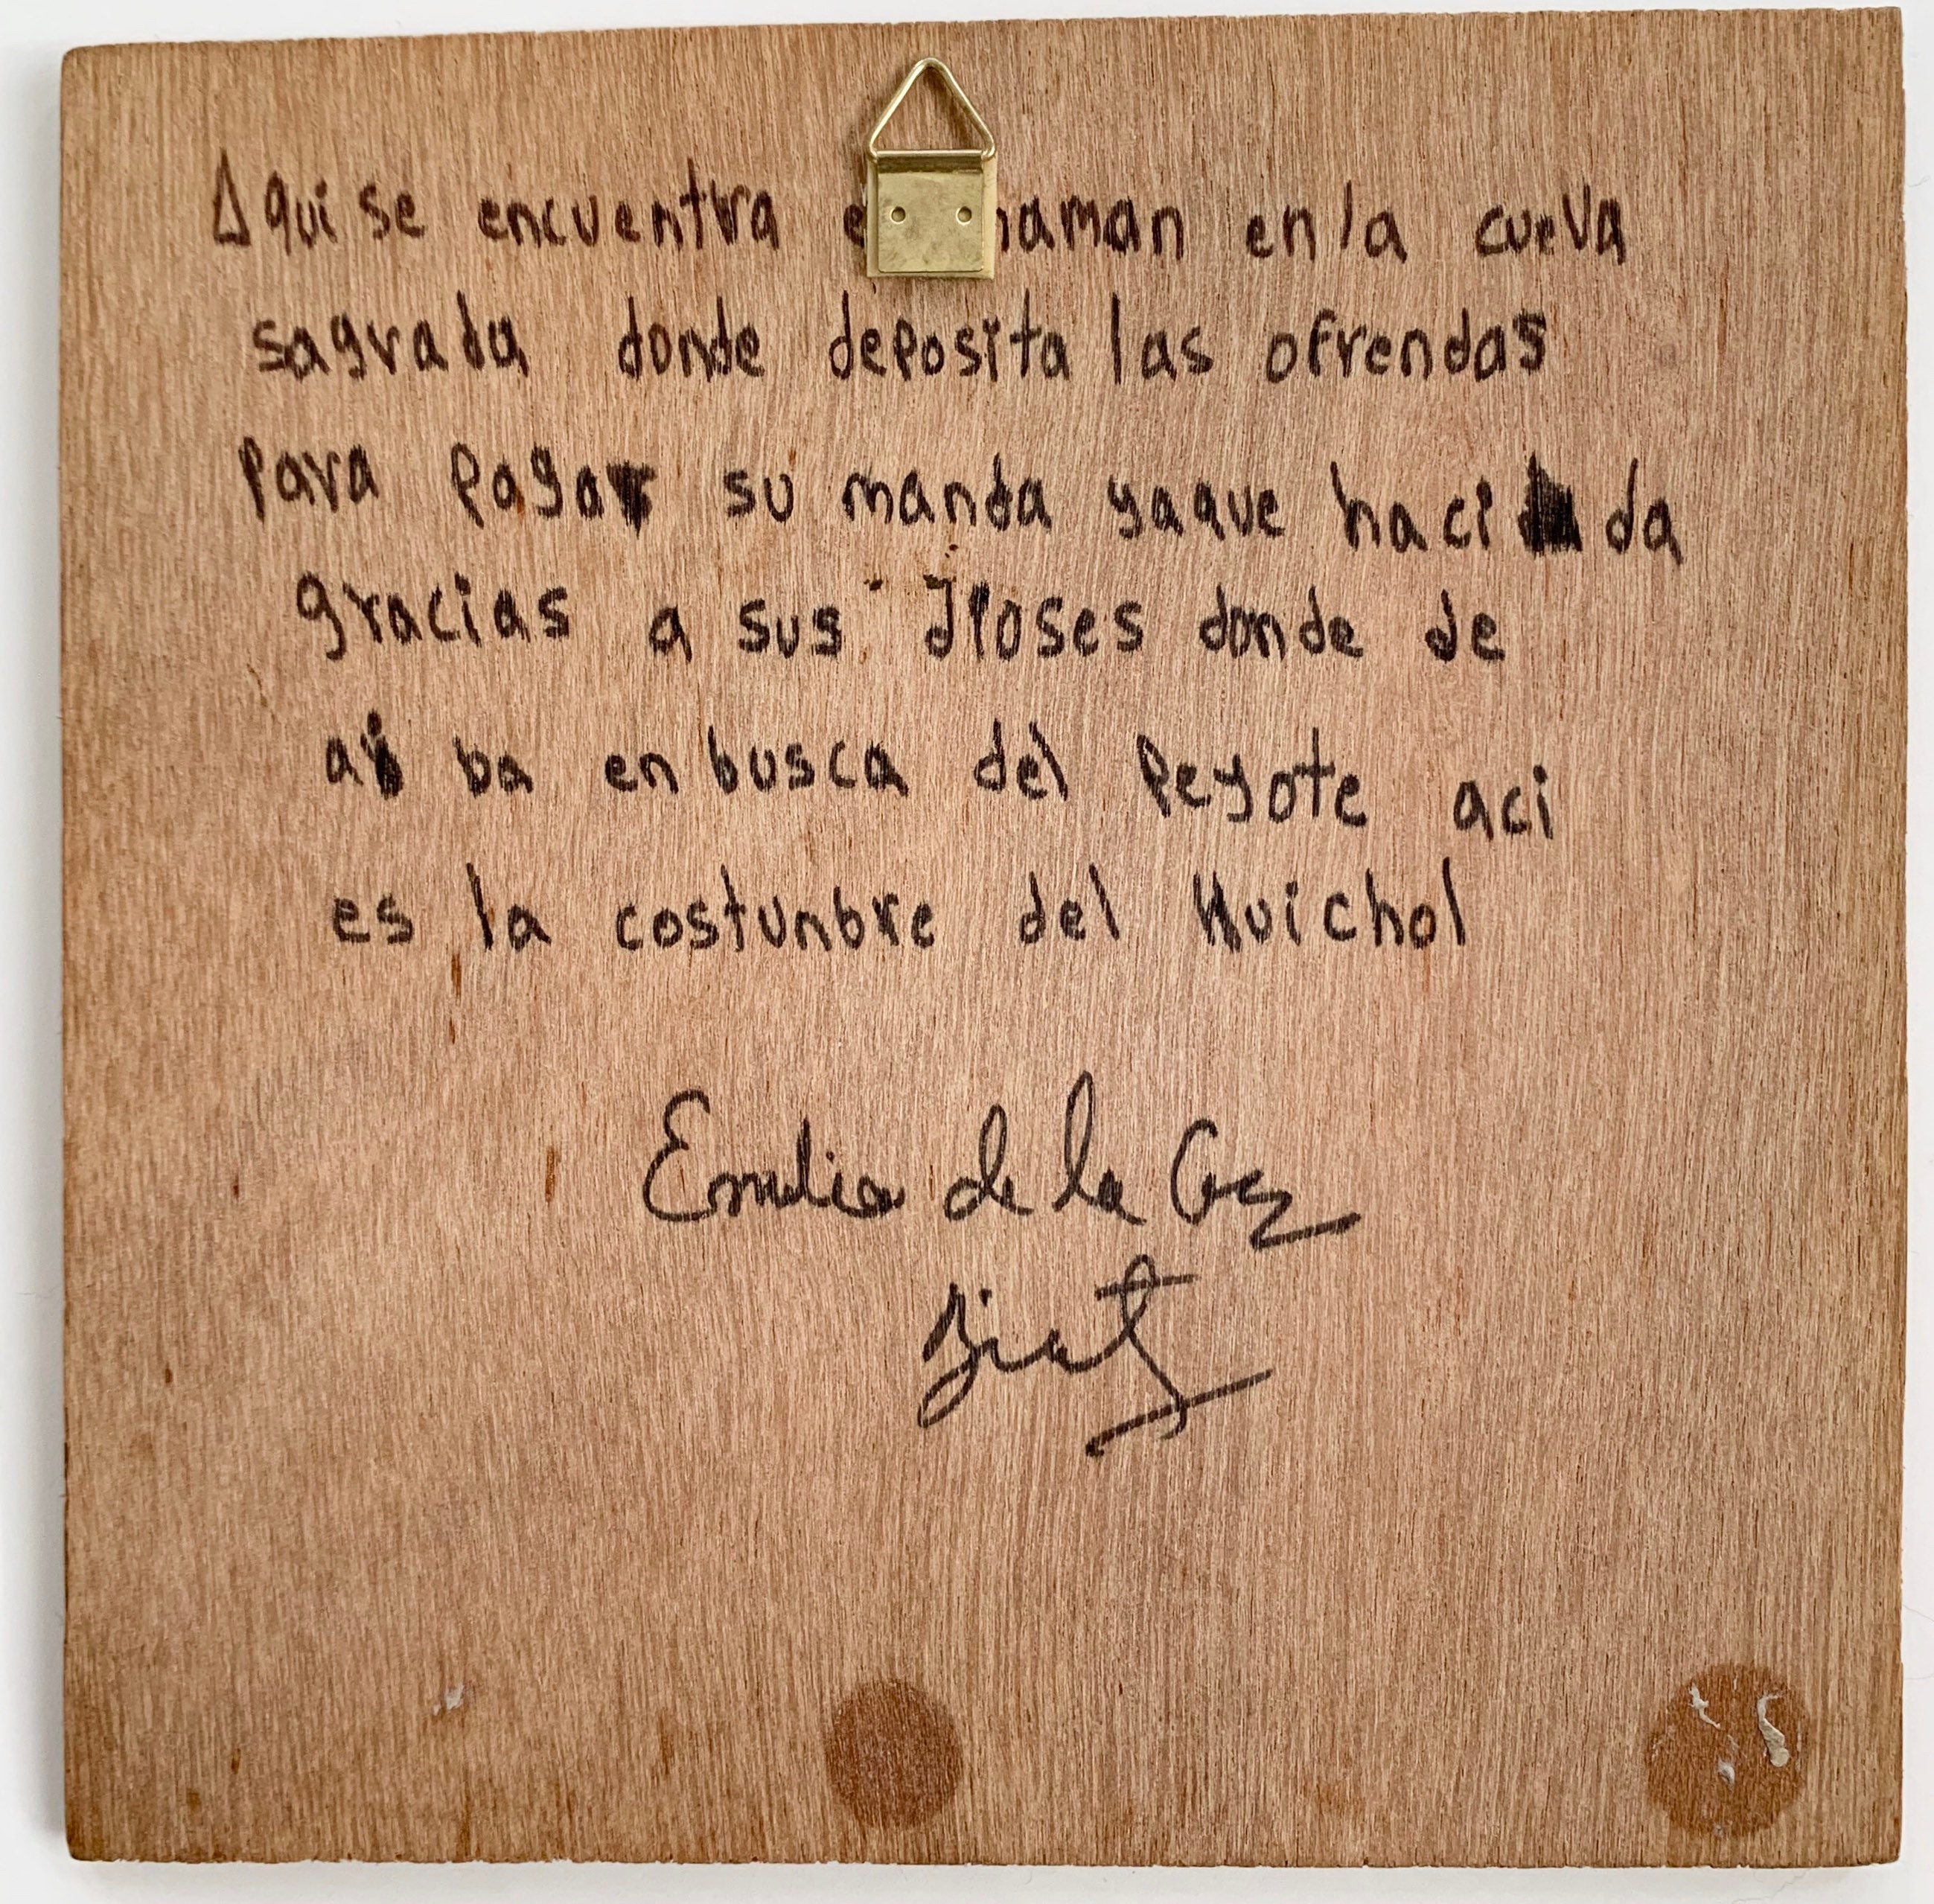 Aqui se encuentra e haman en la cueva
sagrada donde deposita las ofrendas
para pagar su manda yaque haci da
gracias a sus dioses donde de
ai ba en busca del Peyote aci
es la costunbre del Huichol
Emilia de la Cruz